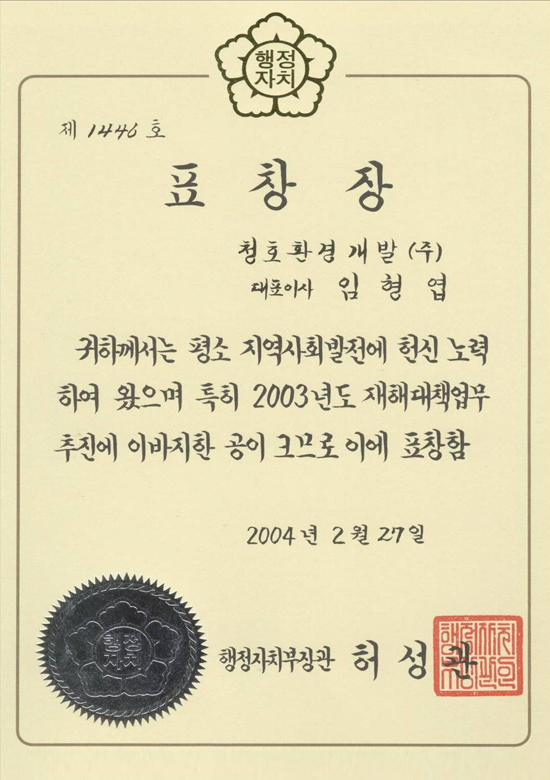 행정
자치
제 1446 호
표 창 장
청호환경개발(주)
대표이사 임형엽
귀하께서는 평소 지역사회발전에 헌신 노력
하여 왔으며 특히 2003년도 재해대책업무
추진에 이바지한 공이 크므로 이에 표창함
2004년 2월 27일
행정
자치
행정자치부장관 허성관